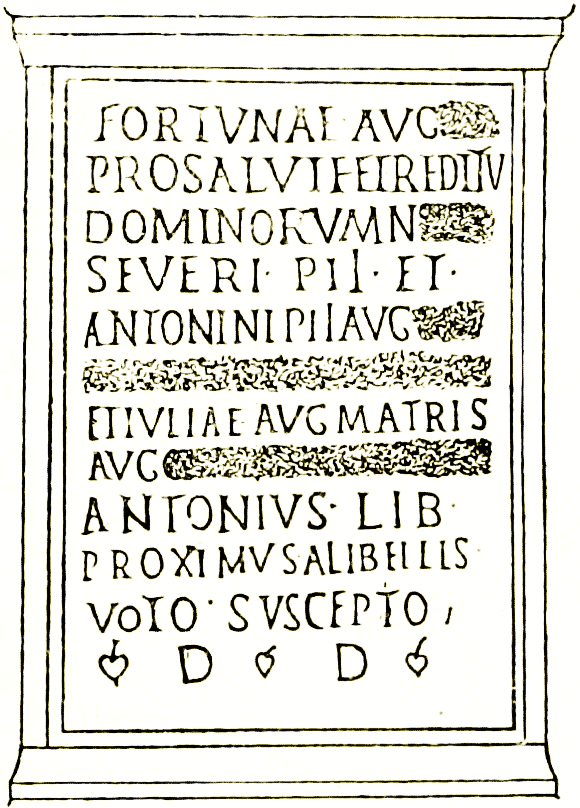 FORTVNAE AVG
PROSALVTEETREDITV
DOMINORVM N
SEVERI · PII · ET ·
ANTONINI PII AVG
ET IVLIAE AVG MATRIS
AVG
ANTONIVS · LIB ·
PROXIMVS A LIBELLIS
VOTO · SVSCEPTO ,
❦ D ❦ D ❦